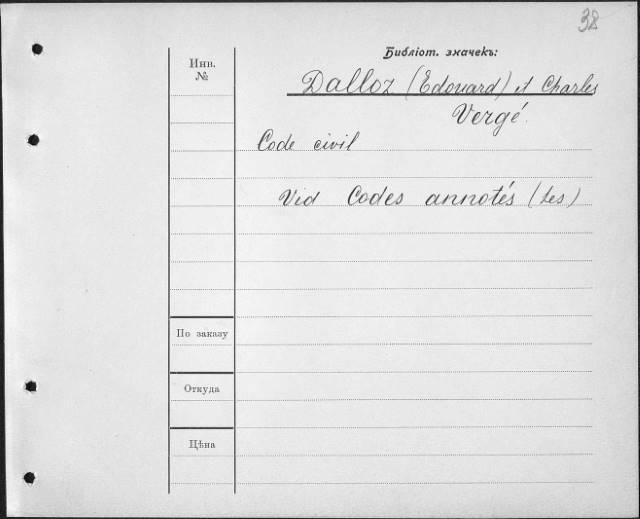 38
Библіот. значекъ:
Инв.
№
Dalloz (Edouard) et Charles
Vergé.
Code civil
Vid Codes annotés (Les)
По заказу
Откуда
Цѣна